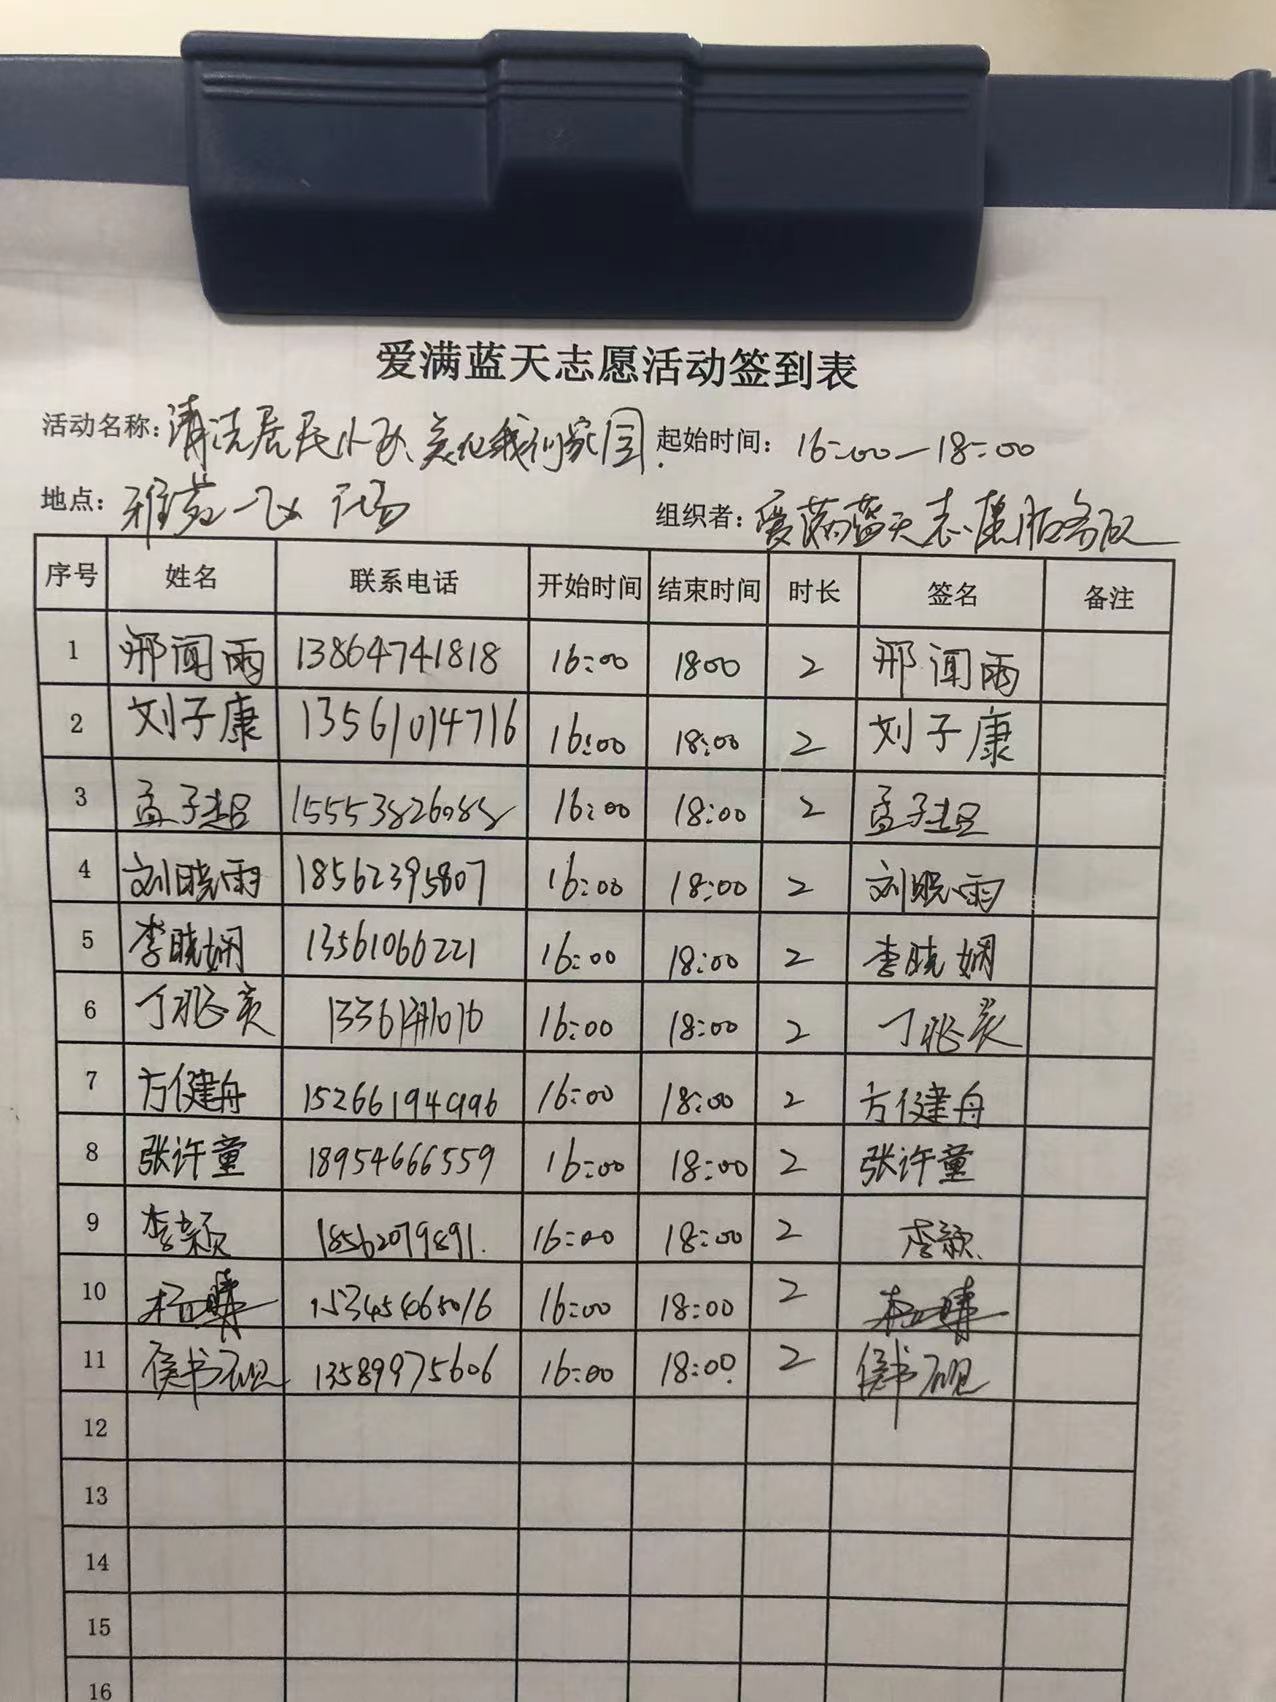 爱满蓝天志愿活动签到表
活动名称: 清洗居民小区 美化我们家园. 起始时间: 16:00—18:00
地点: 雅苑 广场 组织者: 爱满蓝天志愿服务队
序号 姓名 联系电话 开始时间 结束时间 时长 签名 备注
1 邢闻雨 13864741818 16:00 1800 2 邢闻雨
2 刘子康 13561014716 16:00 18:00 2 刘子康
3 孟子超 15553826088 16:00 18:00 2 孟子超
4 刘晓雨 18562395807 16:00 18:00 2 刘晓雨
5 李晓娴 13561066221 16:00 18:00 2 李晓娴
6 丁兆 16:00 18:00 2 丁兆
7 方健舟 15266194996 16:00 18:00 2 方健舟
8 张许童 18954666559 16:00 18:00 2 张许童
9 李颖 18562079891. 16:00 18:00 2 李颖.
10 15345465016 16:00 18:00 2
11 侯书砚 13589975606 16:00 18:00 2 侯书砚
12
13
14
15
16